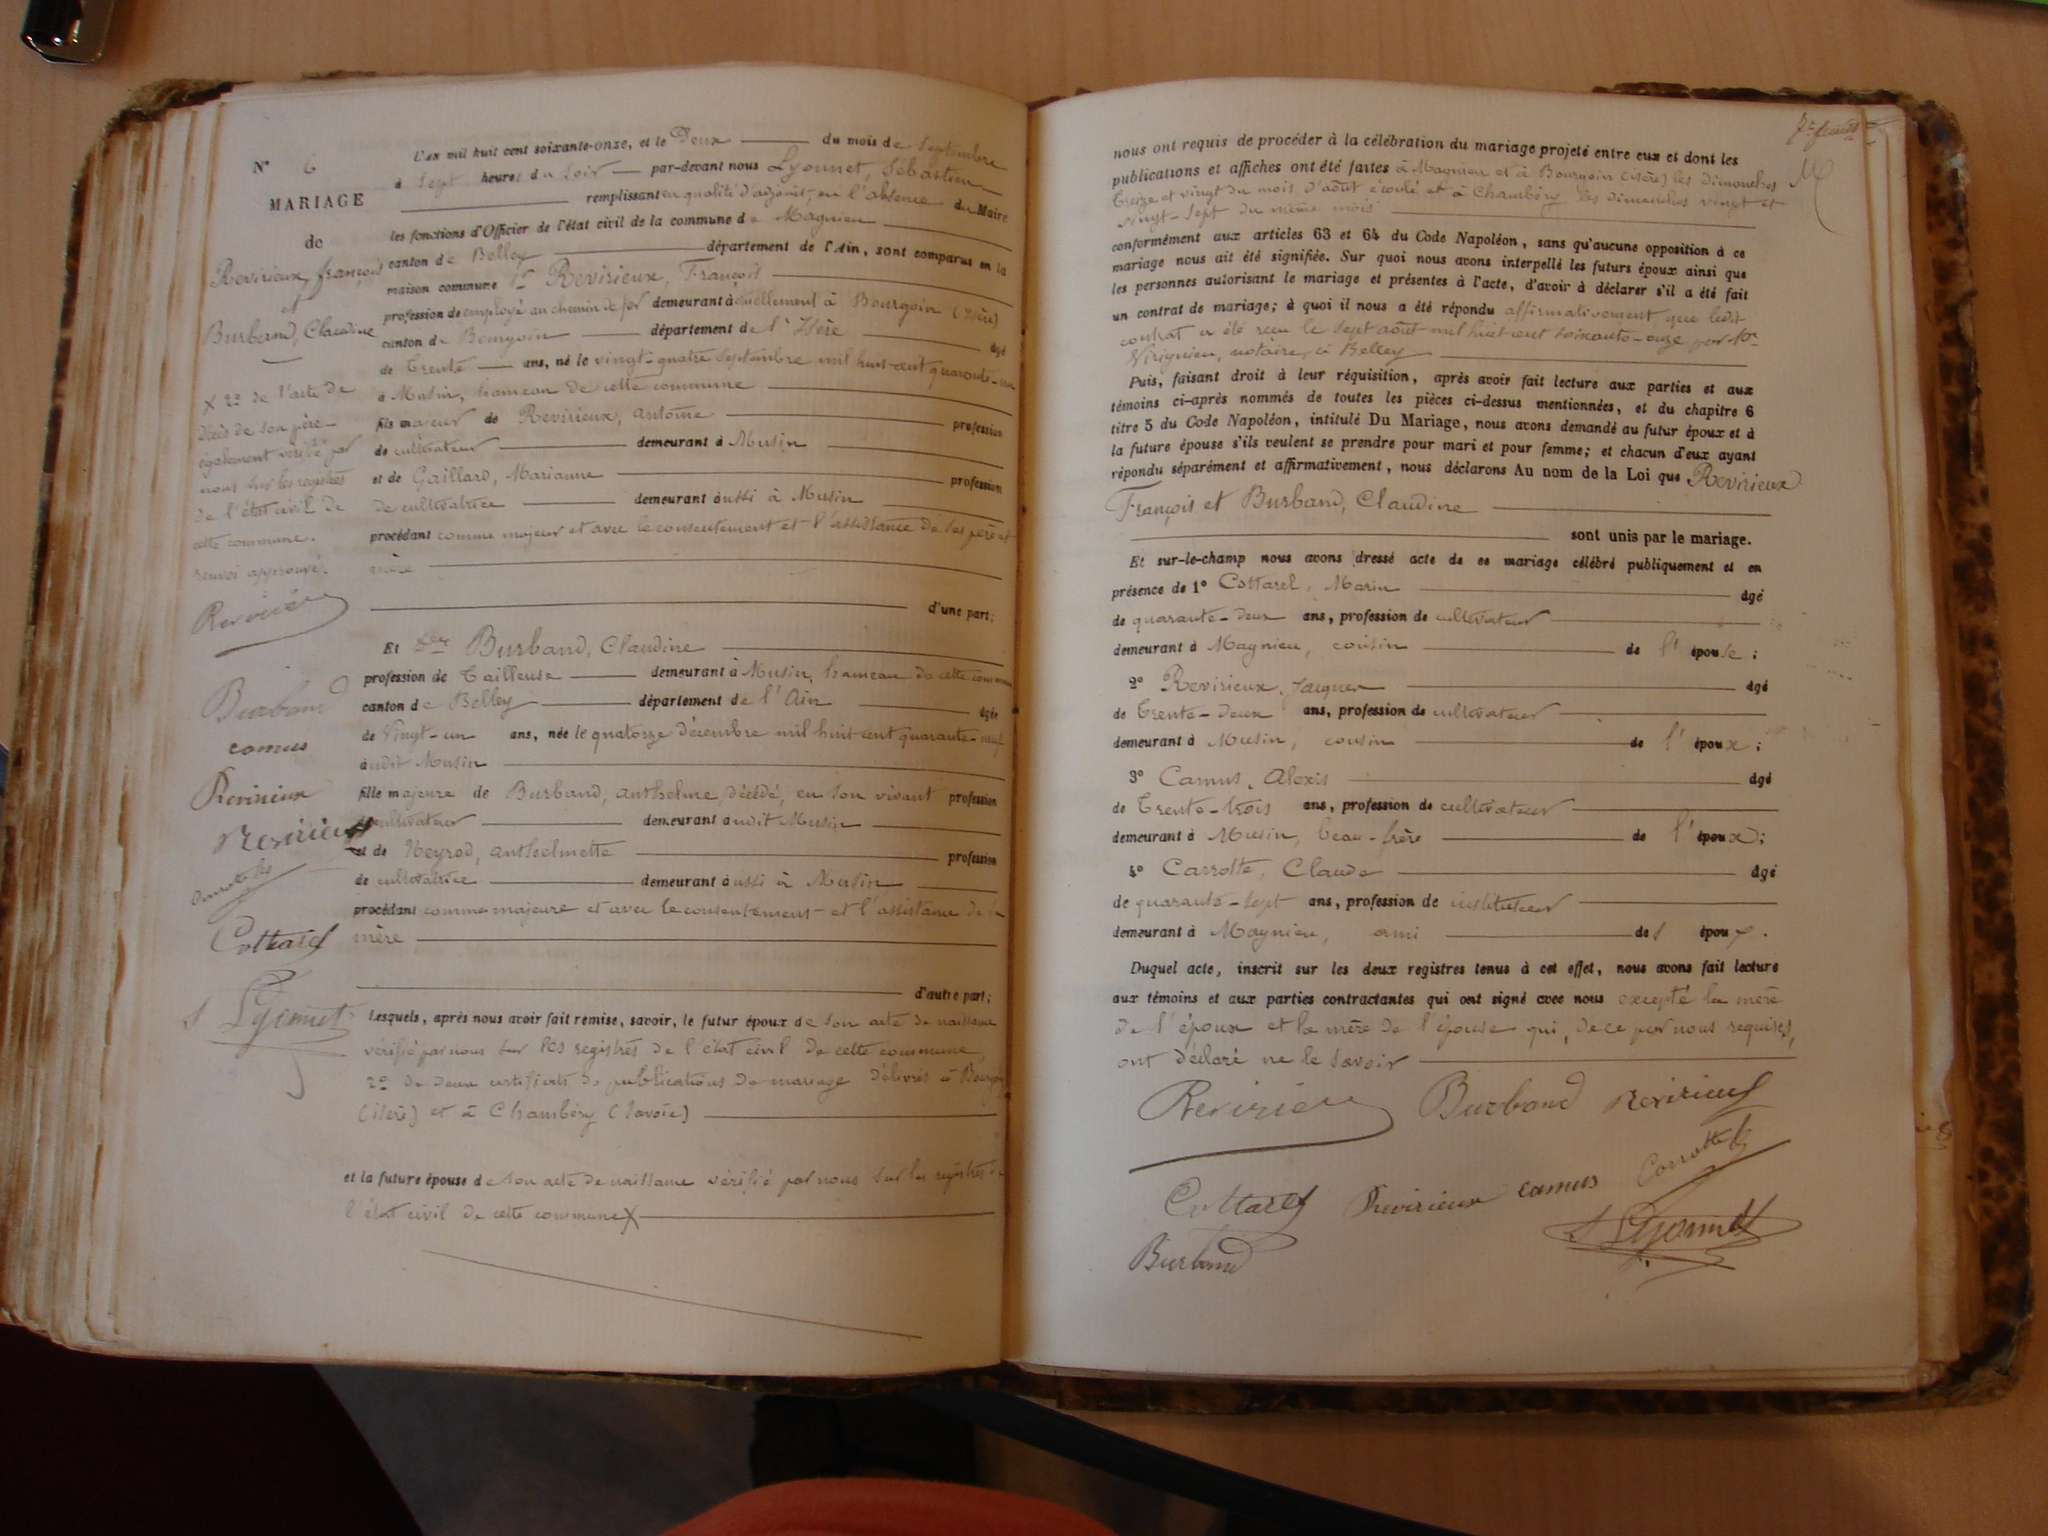 N° 6
MARIAGE
de
Revirieux, françois
et
Burband, Claudine
X 2° de l'acte de
décès de son père
également vérifié par
nous sur les registres
de l'état civil de
cette commune.
renvoi approuvé.
Revirieux
Burband
camus
Revirieux
Revirieux
Carrotte
Cottarel
S Lyonnet
L'an mil huit cent soixante-onze, et le Deux du mois de Septembre
à Sept heures du Soir par-devant nous Lyonnet, Sébastien
remplissant en qualité d'adjoint, en l'absence du Maire
les fonctions d'Officier de l'état civil de la commune de Magnieu
canton de Belley département de l'Ain, sont comparus en la
maison commune Sr Revirieux, François
profession de employé au chemin de fer demeurant actuellement à Bourgoin (Isère)
canton de Bourgoin département de l'Isère âgé
de Trente ans, né le vingt-quatre septembre mil huit-cent quarante-un
à Musin, hameau de cette commune
fils majeur de Revirieux, antoine profession
de cultivateur demeurant à Musin
et de Gaillard, Marianne profession
de cultivatrice demeurant aussi à Musin
procédant comme majeur et avec le consentement et l'assistance de ses père et
mère
d'une part;
Et Dlle Burband, Claudine
profession de Tailleuse demeurant à Musin, hameau de cette commune
canton de Belley département de l'Ain âgée
de Vingt-un ans, née le quatorze décembre mil huit cent quarante-neuf
audit Musin
fille majeure de Burband, anthelme, décédé, en son vivant profession
de cultivateur demeurant audit Musin
et de Neyrod, anthelmette profession
de cultivatrice demeurant aussi à Musin
procédant comme majeure et avec le consentement et l'assistance de sa
mère
d'autre part;
Lesquels, après nous avoir fait remise, savoir, le futur époux de son acte de naissance
vérifié par nous sur les registres de l'état civil de cette commune,
2° de deux certificats de publications de mariage délivrés à Bourgoin
(isère) et à Chambéry (Savoie)
et la future épouse de son acte de naissance vérifié par nous sur les registres de
l'état civil de cette commune X
nous ont requis de procéder à la célébration du mariage projeté entre eux et dont les
publications et affiches ont été faites à Magnieu et à Bourgoin (isère) les dimanches
treize et vingt du mois d'août écoulé et à Chambéry les dimanches vingt et
vingt-sept du même mois
conformément aux articles 63 et 64 du Code Napoléon, sans qu'aucune opposition à ce
mariage nous ait été signifiée. Sur quoi nous avons interpellé les futurs époux ainsi que
les personnes autorisant le mariage et présentes à l'acte, d'avoir à déclarer s'il a été fait
un contrat de mariage; à quoi il nous a été répondu affirmativement, que ledit
contrat a été reçu le sept août mil huit cent soixante-onze par Me
notaire, à Belley
Puis, faisant droit à leur réquisition, après avoir fait lecture aux parties et aux
témoins ci-après nommés de toutes les pièces ci-dessus mentionnées, et du chapitre 6
titre 5 du Code Napoléon, intitulé Du Mariage, nous avons demandé au futur époux et à
la future épouse s'ils veulent se prendre pour mari et pour femme; et chacun d'eux ayant
répondu séparément et affirmativement, nous déclarons Au nom de la Loi que Revirieux
François et Burband, Claudine
sont unis par le mariage.
Et sur-le-champ nous avons dressé acte de ce mariage célébré publiquement et en
présence de 1° Cottarel, Marin âgé
de quarante-deux ans, profession de cultivateur
demeurant à Magnieu, cousin de l'épouse;
2° Revirieux, Jacques âgé
de Trente-Deux ans, profession de cultivateur
demeurant à Musin, cousin de l'époux;
3° Camus, Alexis âgé
de Trente-trois ans, profession de cultivateur
demeurant à Musin, beau-frère de l'époux;
4° Carrotte, Claude âgé
de quarante-sept ans, profession de instituteur
demeurant à Magnieu, ami des époux.
Duquel acte, inscrit sur les deux registres tenus à cet effet, nous avons fait lecture
aux témoins et aux parties contractantes qui ont signé avec nous excepté la mère
de l'époux et la mère de l'épouse qui, de ce par nous requises,
ont déclaré ne le savoir
Revirieux Burband Revirieux
Cottarel Revirieux camus Carrotte
Burband S Lyonnet